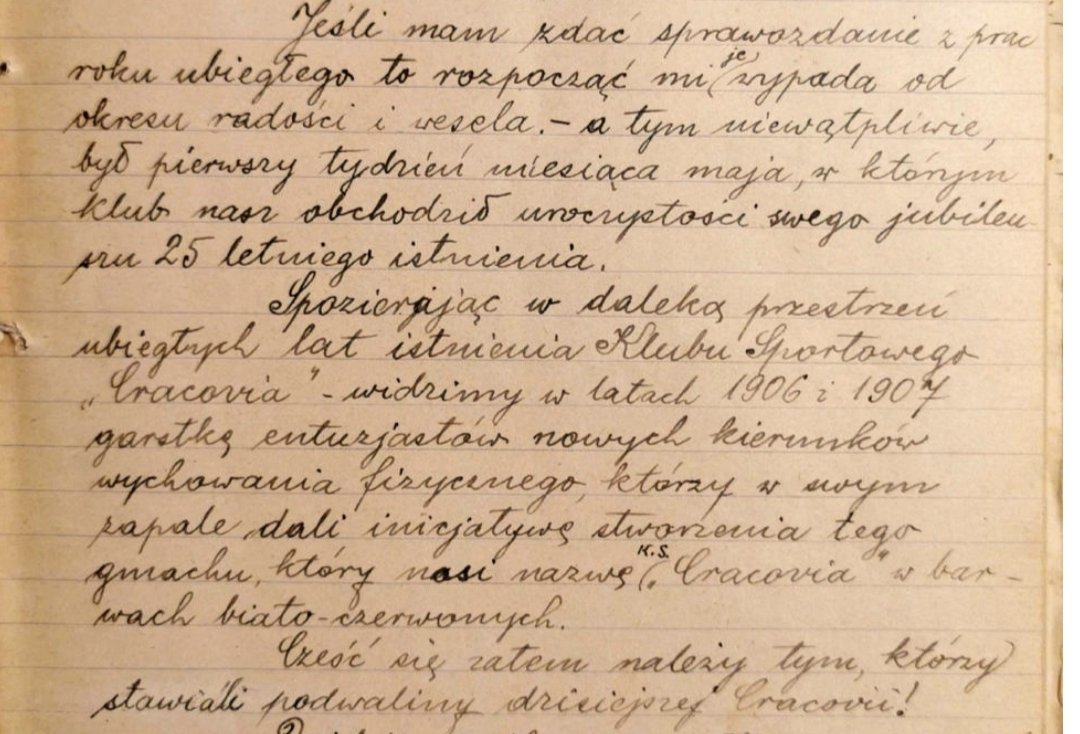 Jeśli mam zdać sprawozdanie z prac
roku ubiegłego to rozpocząć mi je wypada od
okresu radości i wesela. – a tym niewątpliwie,
był pierwszy tydzień miesiąca maja, w którym
klub nasz obchodził uroczystości swego jubileu
szu 25 letniego istnienia.
Spozierając w daleką przestrzeń
ubiegłych lat istnienia Klubu Sportowego
„Cracovia" - widzimy w latach 1906 i 1907
garstkę entuzjastów nowych kierunków
wychowania fizycznego, którzy w swym
zapale dali inicjatywę stworzenia tego
gmachu, który nosi nazwę K.S. „Cracovia" w bar-
wach biało-czerwonych.
Cześć się zatem należy tym, którzy
stawiali podwaliny dzisiejszej Cracovii!